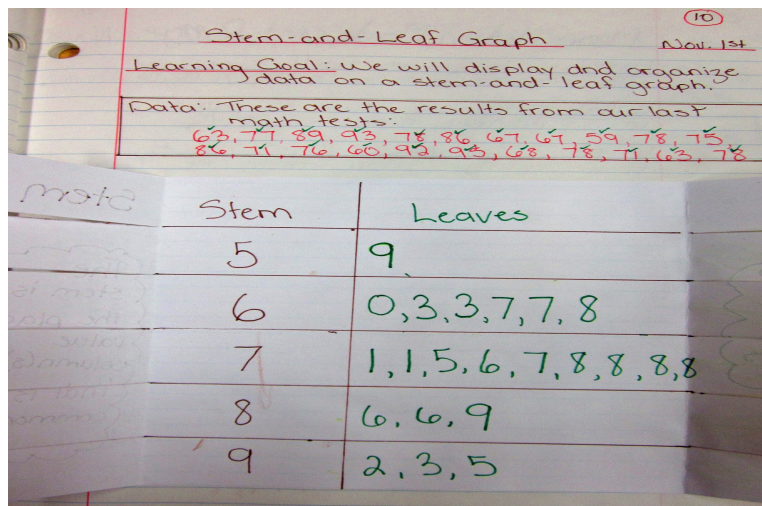 10
Stem-and-Leaf Graph
Nov. 1st
Learning Goal: We will display and organize
data on a stem-and-leaf graph.
Data: These are the results from our last
math tests:
63, 77, 89, 93, 78, 86, 67, 67, 59, 78, 75,
86, 71, 76, 60, 92, 95, 68, 78, 71, 63, 78
Stem Leaves
5 9
6 0,3,3,7,7,8
7 1,1,5,6,7,8,8,8,8
8 6,6,9
9 2,3,5